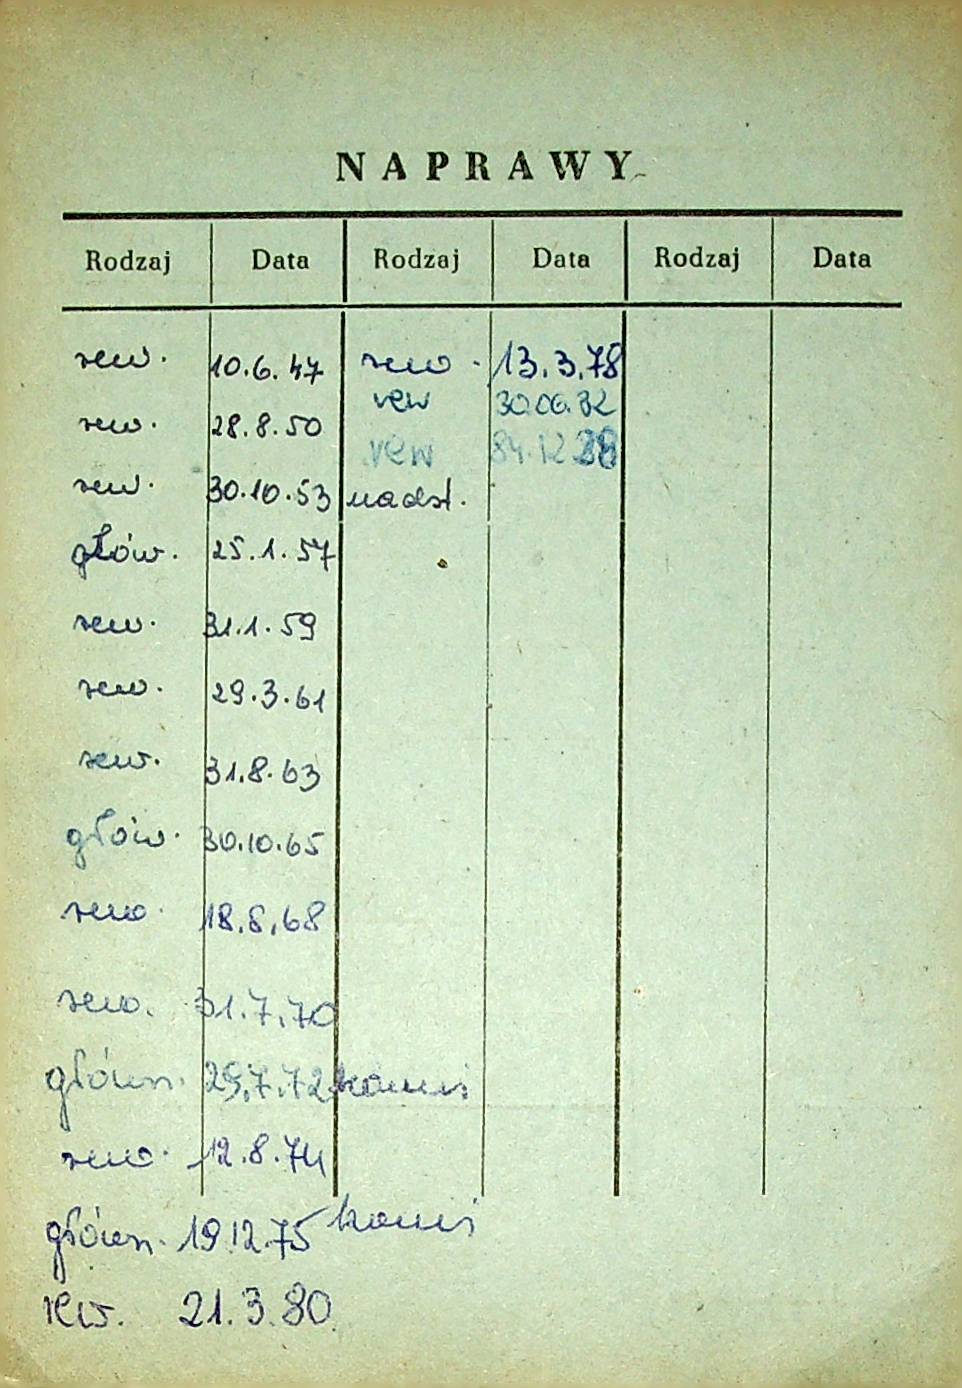 NAPRAWY
Rodzaj Data Rodzaj Data Rodzaj Data
rew. 10.6.47 rew. 13.3.78
rew 30.06.82
rew. 28.8.50
rew 84.12.28
rew. 30.10.53 nadst.
głów. 25.1.57
rew. 31.1.59
rew. 29.3.61
rew. 31.8.63
głów. 30.10.65
rew. 18.8.68
rew. 31.7.70
główn. 29.7.72
rew. 12.8.74
główn. 19.12.75
rew. 21.3.80